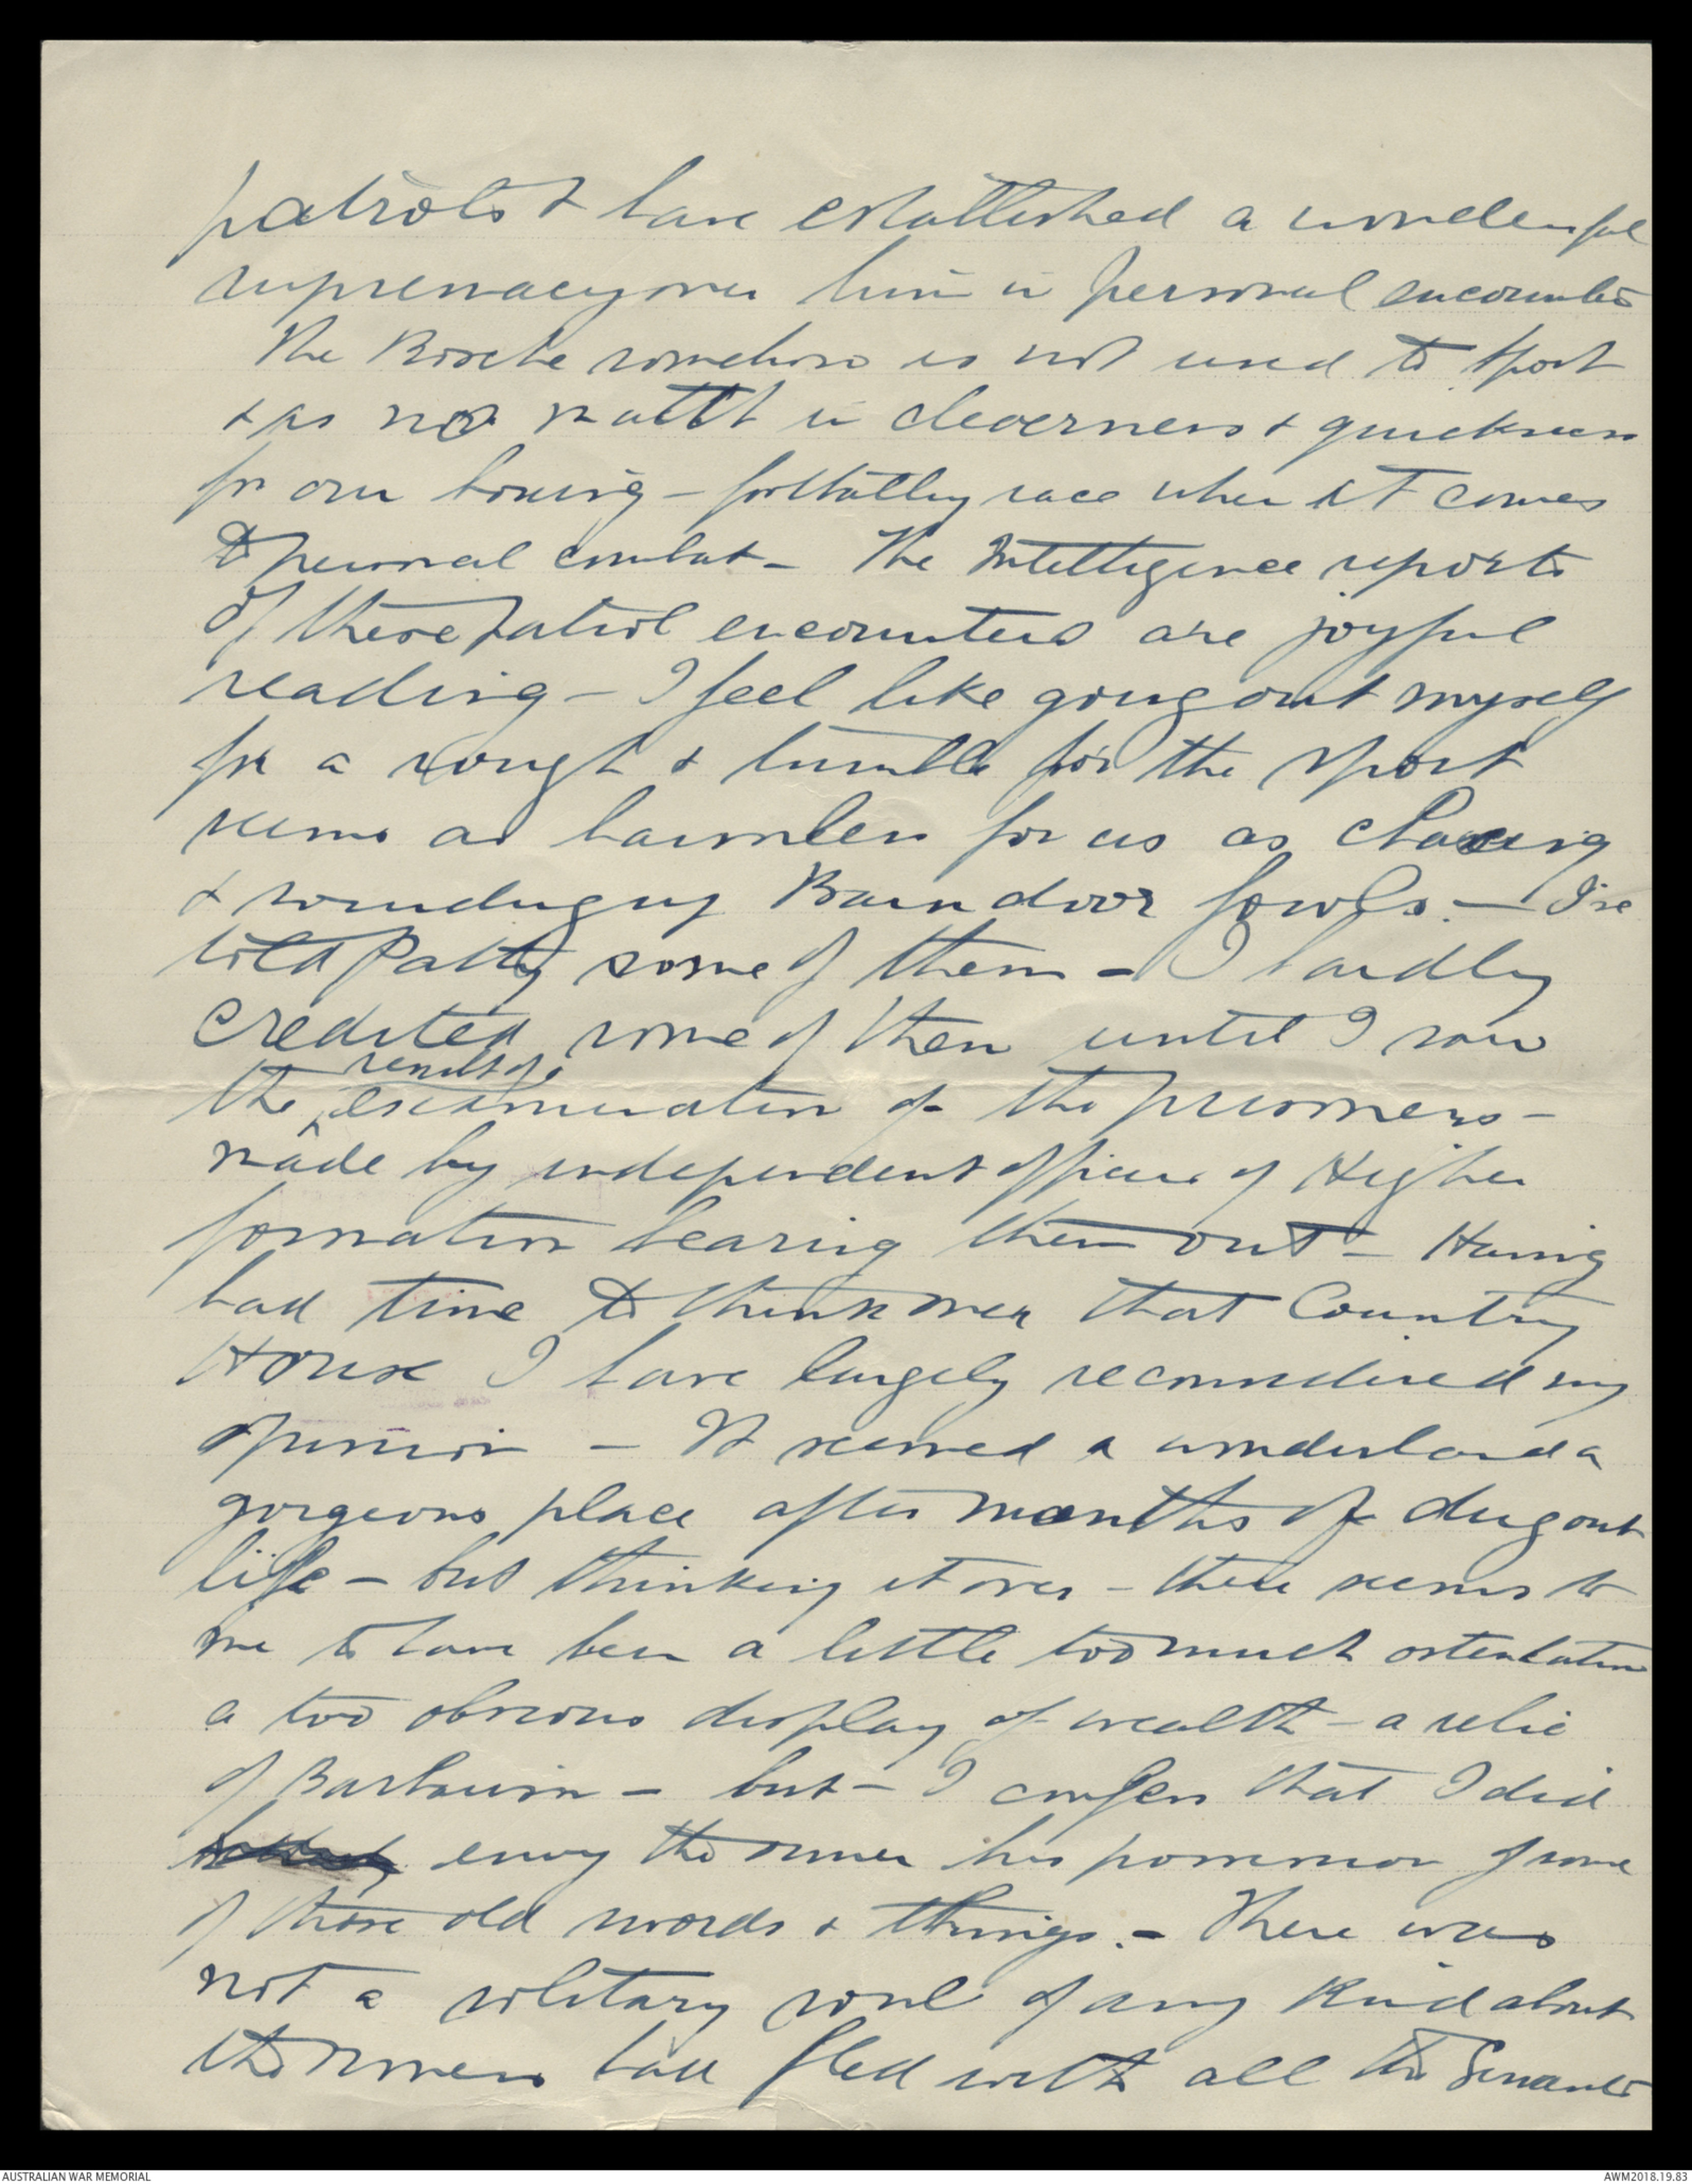 patrols & have established a wonderful
supremacy over him in personal encounters
The Bosche somehow is not used to sport
& is no match in cleverness & quickness
for our boxing - footballing race when it comes
to personal combat - The Intelligence reports
of these patrol encounters are joyful
reading - I feel like going out myself
for a rough & tumble for the sport
seems as harmless for us as chasing
& rounding up Barn door fowls. - I've
told Patty some of them - I hardly
credited some of them until I saw
results of
the examination of the prisoners -
made by independent officers of Higher
formation bearing them out - Having
had time to think over that Country
House I have largely reconsidered my
opinion - It seemed a wonderland a
gorgeous place after months of dugout
life - but thinking it over - there seems to
me to have been a little too much ostentation
a too obvious display of wealth - a relic
of Barbarism - but - I confess that I did
envy the owner his possession of some
of those old swords & things. - There was
not a solitary soul of any kind about
the owners had fled with all the Servants
AUSTRALIAN WAR MEMORIAL
AWM2018.19.83